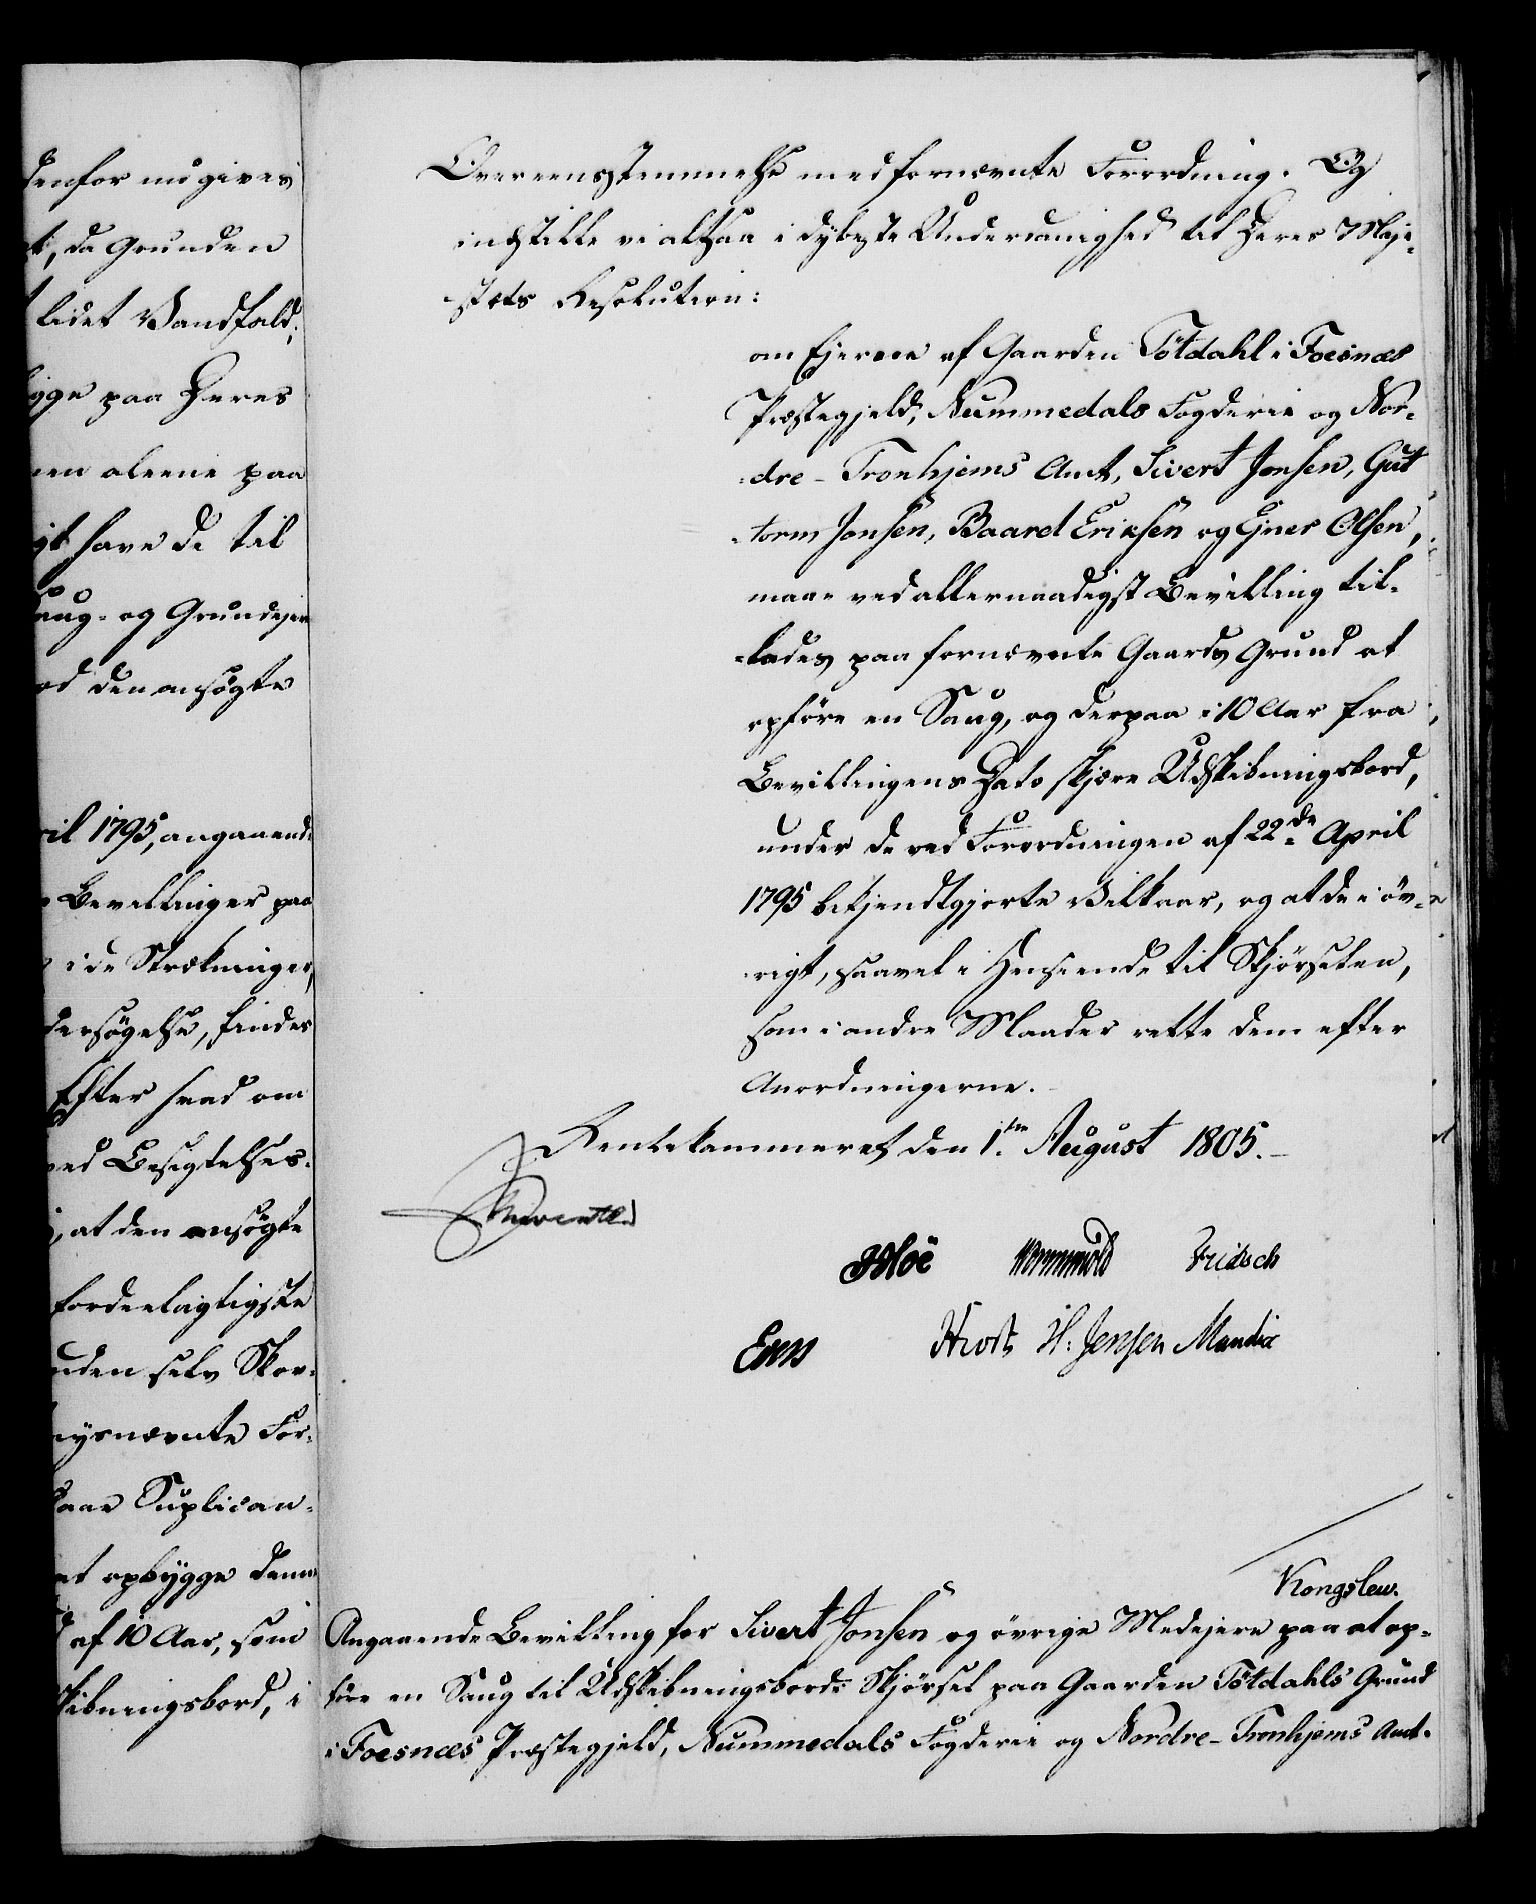 denfor nu gives
t, da Grunden
lidet Vandfald,
ygge paa Deres
nen aleene paa
gt have de til
aug- og Grundejer
od den ansøgte
ril 1795, angaaende
Bevillinger paa
i de Strækninger,
dersøgelse, findes
Efter hvad om
ved Besigtelses-
, at den ansøgte
fordeelagtigste
nden selv Skov-
nysnævnte For-
saae Suplican-
at opbygge denne
af 10 Aar, som
kibningsbord, i
Overeensstemmelse med fornævnte Forordning. Og
indstille vi altsaa i dybeste Underdanighed til Deres Maje-
-stæts Resolution:
om Ejerne af Gaarden Tötdahl i Foesnæs
Præstegjeld, Nummedals Fogderie og Nor-
-dre-Tronhjems Amt, Sivert Jonsen, Gut
-torm Jonsen, Baard Eriksen og Ejner Olsen,
maae ved allernaadigst Bevilling til-
-lades paa fornævnte Gaards Grund at
opföre en Saug, og derpaa i 10 Aar fra
Bevillingens Dato skjære Udskibningsbord,
under de ved Forordningen af 22de April
1795 bekjendtgjorte Vilkaar, og at de i öv-
-rigt, saavel i Henseende til Skjörselen,
som i andre Maader rette dem efter
Anordningerne.
Rentekammeret den 1ten August 1805.
Hoë Wormskiold Fridsch
Enns Hvort H. Jensen Mandix
Kongslew.
Angaaende Bevilling for Sivert Jonsen og övrige Medejere paa at op-
före en Saug til Udskibningsbords Skjörsel paa Gaarden Tötdahls Grund
i Foesnæs Præstegjeld, Nummedals Fogderie og Nordre-Tronhjems Amt.